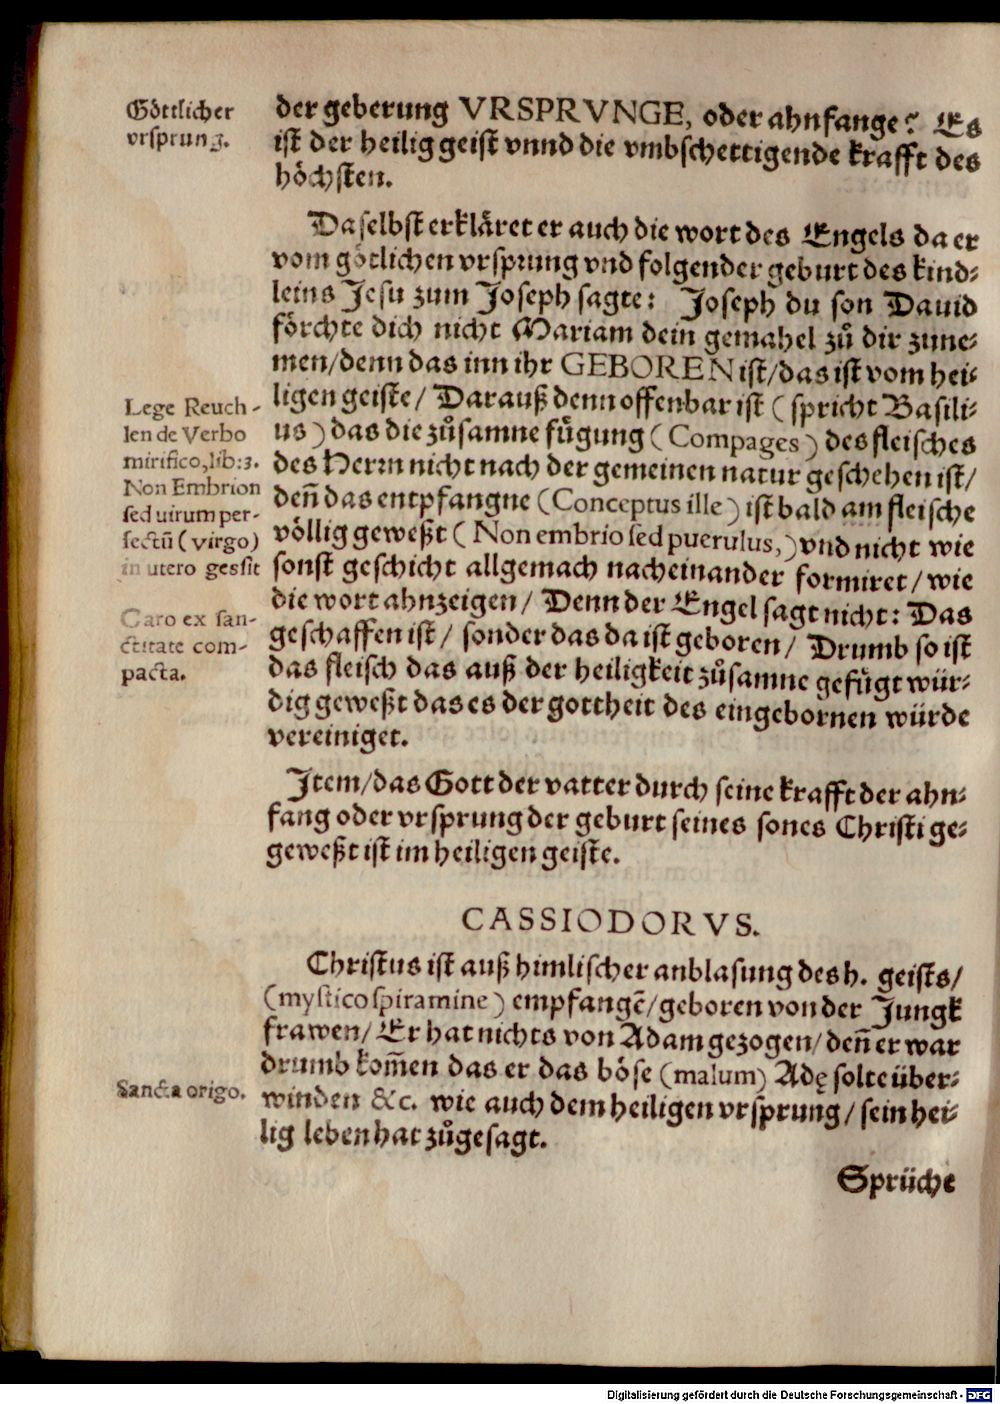 Göttlicher
vrsprung.
der geberung VRSPRVNGE, oder ahnfange? Es
ist der heilig geist vnnd die vmbschettigende krafft des
höchsten.
Daselbst erkläret er auch die wort des Engels da er
vom götlichen vrsprung vnd folgender geburt des kind-
leins Jesu zum Joseph sagte: Joseph du son Dauid
förchte dich nicht Mariam dein gemahel zů dir zune-
men/denn das inn ihr GEBOREN ist/das ist vom hei-
ligen geiste/ Darauß denn offenbar ist (spricht Basili-
us) das die zůsamne fügung (Compages) des fleisches
des Herrn nicht nach der gemeinen natur geschehen ist/
deñ das entpfangne (Conceptus ille) ist bald am fleische
völlig geweßt (Non embrio sed puerulus,) vnd nicht wie
sonst geschicht allgemach nacheinander formiret/ wie
die wort ahnzeigen/ Denn der Engel sagt nicht: Das
geschaffen ist/ sonder das da ist geboren/ Drumb so ist
das fleisch das auß der heiligkeit zůsamne gefügt wür-
dig geweßt das es der gottheit des eingebornen würde
vereiniget.
Lege Reuch-
len de Verbo
mirifico, lib:3.
Non Embrion
sed uirum per-
fectū (virgo)
in utero gessit
Caro ex san-
ctitate com-
pacta.
Item/das Gott der vatter durch seine krafft der ahn-
fang oder vrsprung der geburt seines sones Christi ge-
geweßt ist im heiligen geiste.
CASSIODORVS.
Christus ist auß himlischer anblasung des h. geists/
(mystico spiramine) empfangē/geboren von der Jungk
frawen/ Er hat nichts von Adam gezogen/ deñ er war
drumb kom̄en das er das böse (malum) Adę solte über-
winden &c. wie auch dem heiligen vrsprung/ sein hei-
lig leben hat zůgesagt.
Sancta origo.
Sprüche
Digitalisierung gefördert durch die Deutsche Forschungsgemeinschaft - DFG